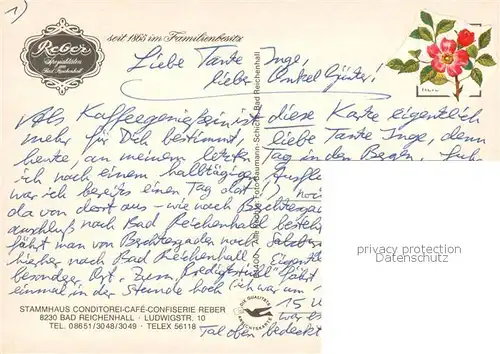 1)
Reber
Spezialitäten
Bad Reichenhall
seit 1865 im Familienbesitz
Liebe Tante Inge,
lieber Onkel Günter,
Als Kaffeegenießerin ist diese Karte eigentlich
mehr für Dich bestimmt, liebe Tante Inge, denn
heute, an meinem letzten Tag in den Bergen - fuhr
ich nach einem halbtägigen Ausflu
war ich bereits einen Tag dort), no
da von dort aus - wie nach Berchtesgaden
anschluß nach Bad Reichenhall besteht
fährt man von Berchtesgaden nach
hierher nach Bad Reichenhall.
besonderer Ort "Zum Predigtstuhl" fährt
einmal in der Stunde hoch (ich war um
15
war es
Tal oben bedeckt
Foto-Baumann-Schicht Bad Reichenhall
DIE QUALITÄTS
ANSICHTSKARTE
STAMMHAUS CONDITOREI-CAFÉ-CONFISERIE REBER
8230 BAD REICHENHALL · LUDWIGSTR. 10
TEL. 08651/3048/3049 · TELEX 56118
privacy protection
Datenschutz